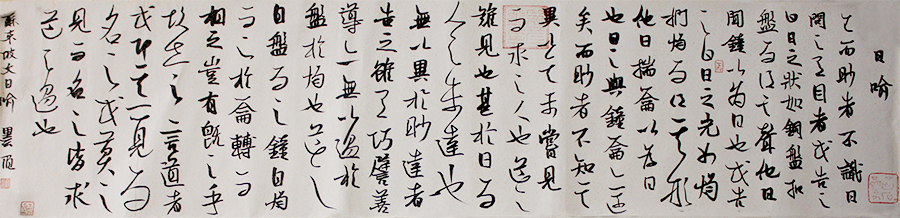 日喻
生而眇者不識日
問之有目者或告之
曰日之狀如銅盤扣
盤而得其聲他日
聞鐘以為日也或告
之曰日之光如燭
捫燭而得其形
他日揣籥以為日
也日之與鐘籥亦遠
矣而眇者不知其
異以其未嘗見
而求之人也道之
難見也甚於日而
人之未達也
無以異於眇達者
告之雖有巧譬善
導亦無以過於
盤於燭也
自盤而之鐘自燭
而之於籥轉而
相之豈有既之乎
故世之言道者
或即其一見而
名之或莫之
見而名之皆求
道之過也
蘇東坡文日喻